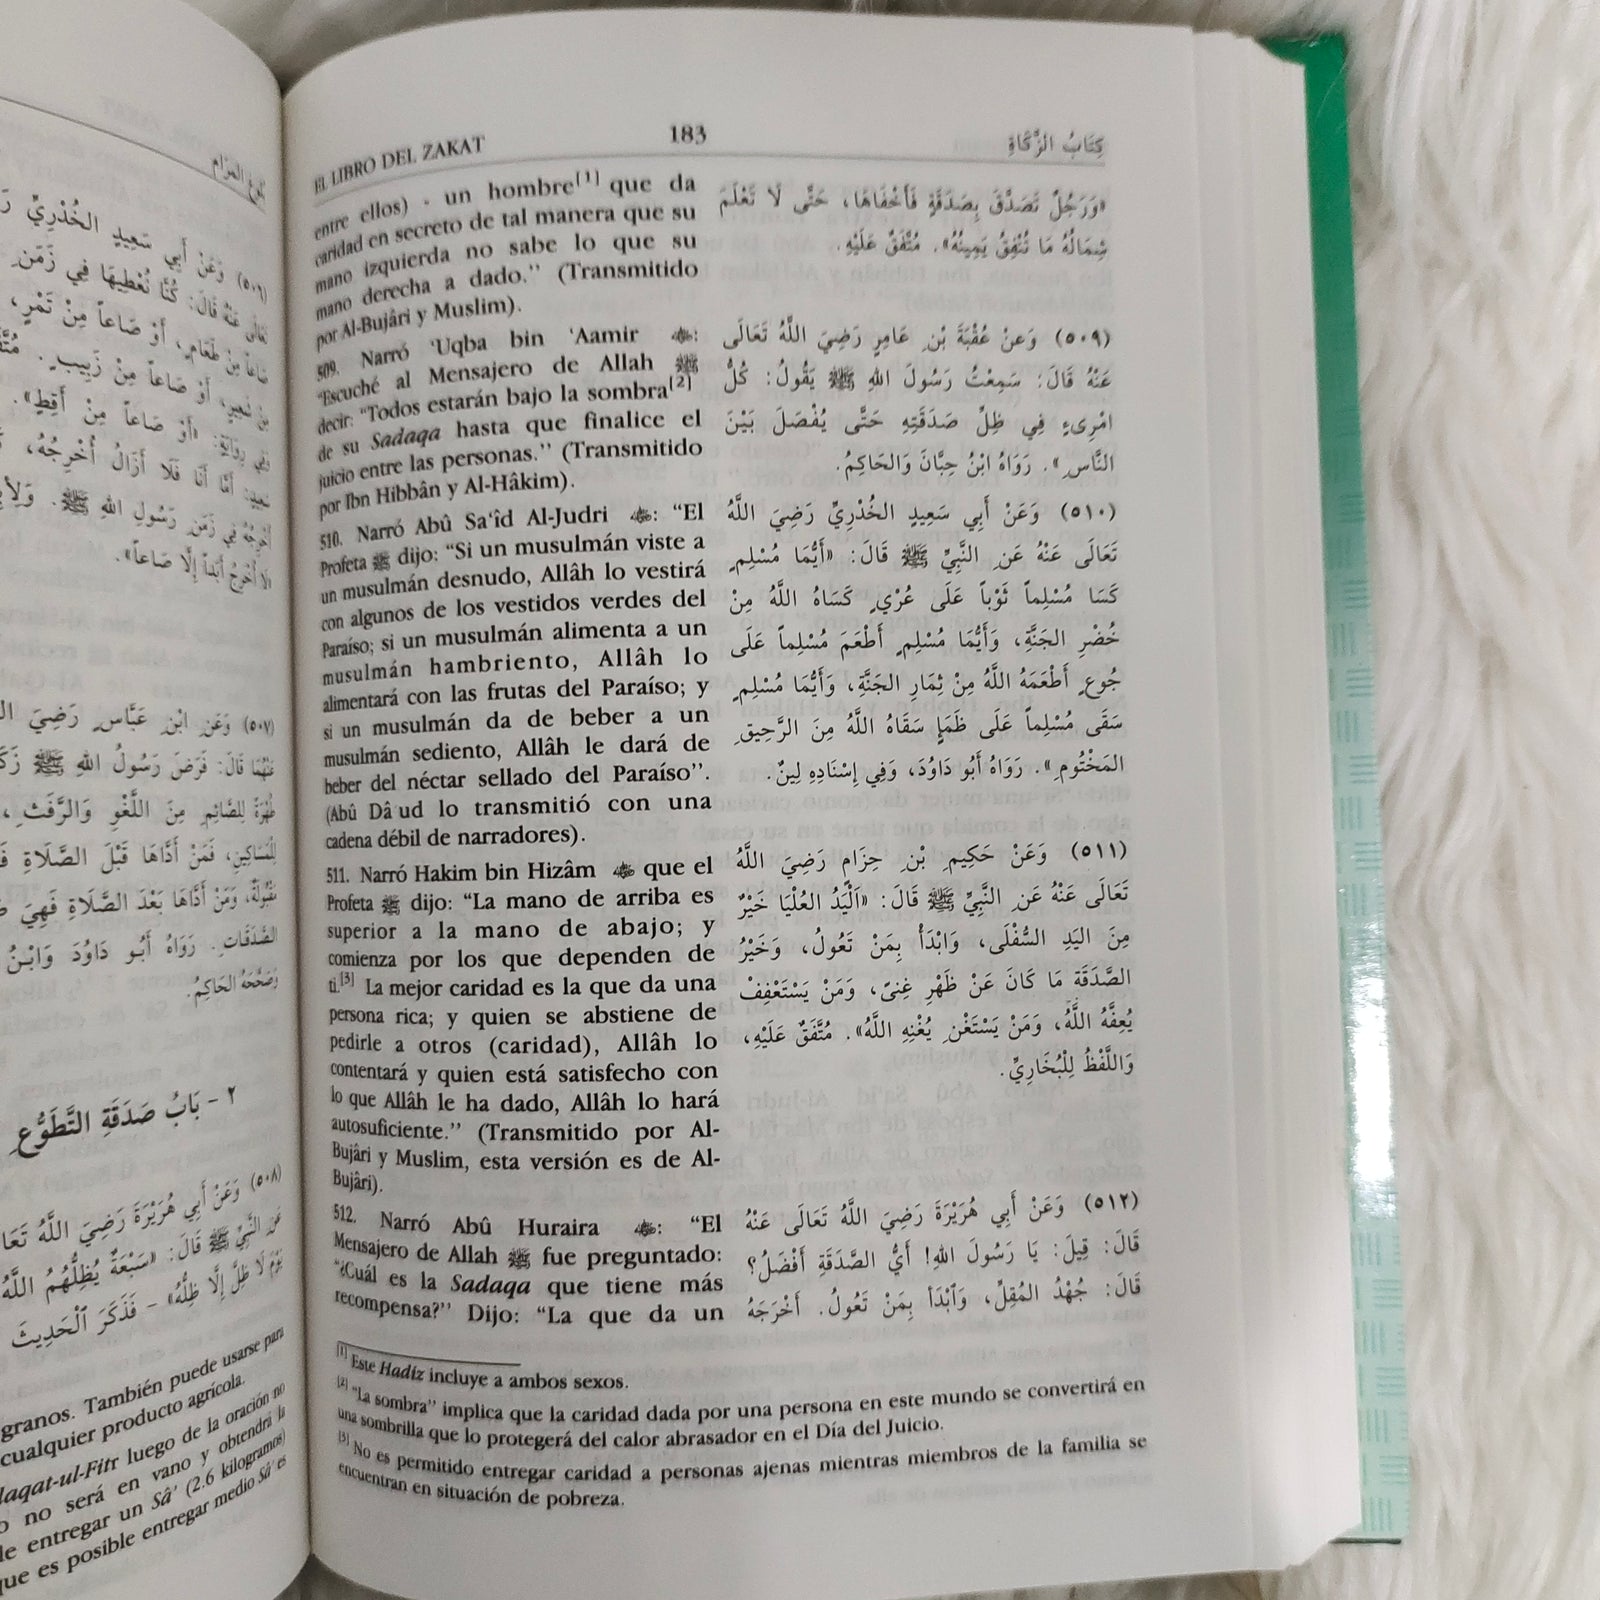 بلوغ المرام
(٥٠٦) وَعَنْ أَبِي سَعِيدٍ الخُدْرِيِّ
تَعَالَى عَنْهُ قَالَ: كُنَّا نُعْطِيهَا فِي زَمَنِ
صَاعاً مِنْ طَعَامٍ، أَوْ صَاعاً مِنْ تَمْرٍ،
مِنْ شَعِيرٍ، أَوْ صَاعاً مِنْ زَبِيبٍ.
وَفِي رِوَايَةٍ: «أَوْ صَاعاً مِنْ أَقِطٍ».
سَعِيدٍ: أَمَّا أَنَا فَلَا أَزَالُ أُخْرِجُهُ،
أُخْرِجُهُ فِي زَمَنِ رَسُولِ اللهِ ﷺ.
لَا أُخْرِجُ أَبَداً إِلَّا صَاعاً».
(٥٠٧) وَعَنِ ابْنِ عَبَّاسٍ رَضِيَ
عَنْهُمَا قَالَ: فَرَضَ رَسُولُ اللهِ ﷺ
طُهْرَةً لِلصَّائِمِ مِنَ اللَّغْوِ وَالرَّفَثِ،
لِلْمَسَاكِينِ، فَمَنْ أَدَّاهَا قَبْلَ الصَّلَاةِ
مَقْبُولَةٌ، وَمَنْ أَدَّاهَا بَعْدَ الصَّلَاةِ فَهِيَ
الصَّدَقَاتِ. رَوَاهُ أَبُو دَاوُدَ وَابْنُ
وَصَحَّحَهُ الحَاكِمُ.
٢ - بَابُ صَدَقَةِ التَّطَوُّعِ
(٥٠٨) وَعَنْ أَبِي هُرَيْرَةَ رَضِيَ اللَّهُ
عَنِ النَّبِيِّ ﷺ قَالَ: «سَبْعَةٌ يُظِلُّهُمُ اللَّهُ
يَوْمَ لَا ظِلَّ إِلَّا ظِلُّهُ» - فَذَكَرَ الْحَدِيثَ
granos. También puede usarse para
cualquier producto agrícola.
luego de la oración no
no será en vano y obtendrá la
entregar un Sâ' (2.6 kilogramos)
que es posible entregar medio Sâ' es
EL LIBRO DEL ZAKAT 183 كِتَابُ الزَّكَاةِ
entre ellos) - un hombre[1] que da
caridad en secreto de tal manera que su
mano izquierda no sabe lo que su
mano derecha a dado.'' (Transmitido
por Al-Bujâri y Muslim).
509. Narró ‘Uqba bin ‘Aamir ﷺ:
“Escuché al Mensajero de Allah ﷺ
decir: “Todos estarán bajo la sombra[2]
de su Sadaqa hasta que finalice el
juicio entre las personas.'' (Transmitido
por Ibn Hibbân y Al-Hâkim).
510. Narró Abû Sa‘îd Al-Judri : “El
Profeta ﷺ dijo: “Si un musulmán viste a
un musulmán desnudo, Allâh lo vestirá
con algunos de los vestidos verdes del
Paraíso; si un musulmán alimenta a un
musulmán hambriento, Allâh lo
alimentará con las frutas del Paraíso; y
si un musulmán da de beber a un
musulmán sediento, Allâh le dará de
beber del néctar sellado del Paraíso”.
(Abû Dâ'ud lo transmitió con una
cadena débil de narradores).
511. Narró Hakim bin Hizâm que el
Profeta ﷺ dijo: “La mano de arriba es
superior a la mano de abajo; y
comienza por los que dependen de
ti.[3] La mejor caridad es la que da una
persona rica; y quien se abstiene de
pedirle a otros (caridad), Allâh lo
contentará y quien está satisfecho con
lo que Allâh le ha dado, Allâh lo hará
autosuficiente.'' (Transmitido por Al-
Bujâri y Muslim, esta versión es de Al-
Bujâri).
512. Narró Abû Huraira : “El
Mensajero de Allah ﷺ fue preguntado:
“¿Cuál es la Sadaqa que tiene más
recompensa?'' Dijo: “La que da un
«وَرَجُلٌ تَصَدَّقَ بِصَدَقَةٍ فَأَخْفَاهَا، حَتَّى لَا تَعْلَمَ
شِمَالُهُ مَا تُنْفِقُ يَمِينُهُ». مُتَّفَقٌ عَلَيْهِ.
(٥٠٩) وَعَنْ عُقْبَةَ بْنِ عَامِرٍ رَضِيَ اللَّهُ تَعَالَى
عَنْهُ قَالَ: سَمِعْتُ رَسُولَ اللهِ ﷺ يَقُولُ: كُلُّ
امْرِىءٍ فِي ظِلِّ صَدَقَتِهِ حَتَّى يُفْصَلَ بَيْنَ
النَّاسِ». رَوَاهُ ابْنُ حِبَّانَ وَالحَاكِمُ.
(٥١٠) وَعَنْ أَبِي سَعِيدٍ الخُدْرِيِّ رَضِيَ اللَّهُ
تَعَالَى عَنْهُ عَنِ النَّبِيِّ ﷺ قَالَ: «أَيُّمَا مُسْلِمٍ
كَسَا مُسْلِماً ثَوْباً عَلَى عُرْيٍ كَسَاهُ اللَّهُ مِنْ
خُضْرِ الجَنَّةِ، وَأَيُّمَا مُسْلِمٍ أَطْعَمَ مُسْلِماً عَلَى
جُوعٍ أَطْعَمَهُ اللَّهُ مِنْ ثِمَارِ الجَنَّةِ، وَأَيُّمَا مُسْلِمٍ
سَقَى مُسْلِماً عَلَى ظَمَإٍ سَقَاهُ اللَّهُ مِنَ الرَّحِيقِ
المَخْتُومِ». رَوَاهُ أَبُو دَاوُدَ، وَفِي إِسْنَادِهِ لِينٌ.
(٥١١) وَعَنْ حَكِيمِ بْنِ حِزَامٍ رَضِيَ اللَّهُ
تَعَالَى عَنْهُ عَنِ النَّبِيِّ ﷺ قَالَ: «اَلْيَدُ العُلْيَا خَيْرٌ
مِنَ اليَدِ السُّفْلَى، وَابْدَأْ بِمَنْ تَعُولُ، وَخَيْرُ
الصَّدَقَةِ مَا كَانَ عَنْ ظَهْرِ غِنىً، وَمَنْ يَسْتَعْفِفْ
يُعِفَّهُ اللَّهُ، وَمَنْ يَسْتَغْنِ يُغْنِهِ اللَّهُ». مُتَّفَقٌ عَلَيْهِ،
وَاللَّفْظُ لِلْبُخَارِيِّ.
(٥١٢) وَعَنْ أَبِي هُرَيْرَةَ رَضِيَ اللَّهُ تَعَالَى عَنْهُ
قَالَ: قِيلَ: يَا رَسُولَ اللهِ! أَيُّ الصَّدَقَةِ أَفْضَلُ؟
قَالَ: جُهْدُ المُقِلِّ، وَابْدَأْ بِمَنْ تَعُولُ. أَخْرَجَهُ
[1] Este Hadiz incluye a ambos sexos.
[2] “La sombra'' implica que la caridad dada por una persona en este mundo se convertirá en
una sombrilla que lo protegerá del calor abrasador en el Día del Juicio.
[3] No es permitido entregar caridad a personas ajenas mientras miembros de la familia se
encuentran en situación de pobreza.